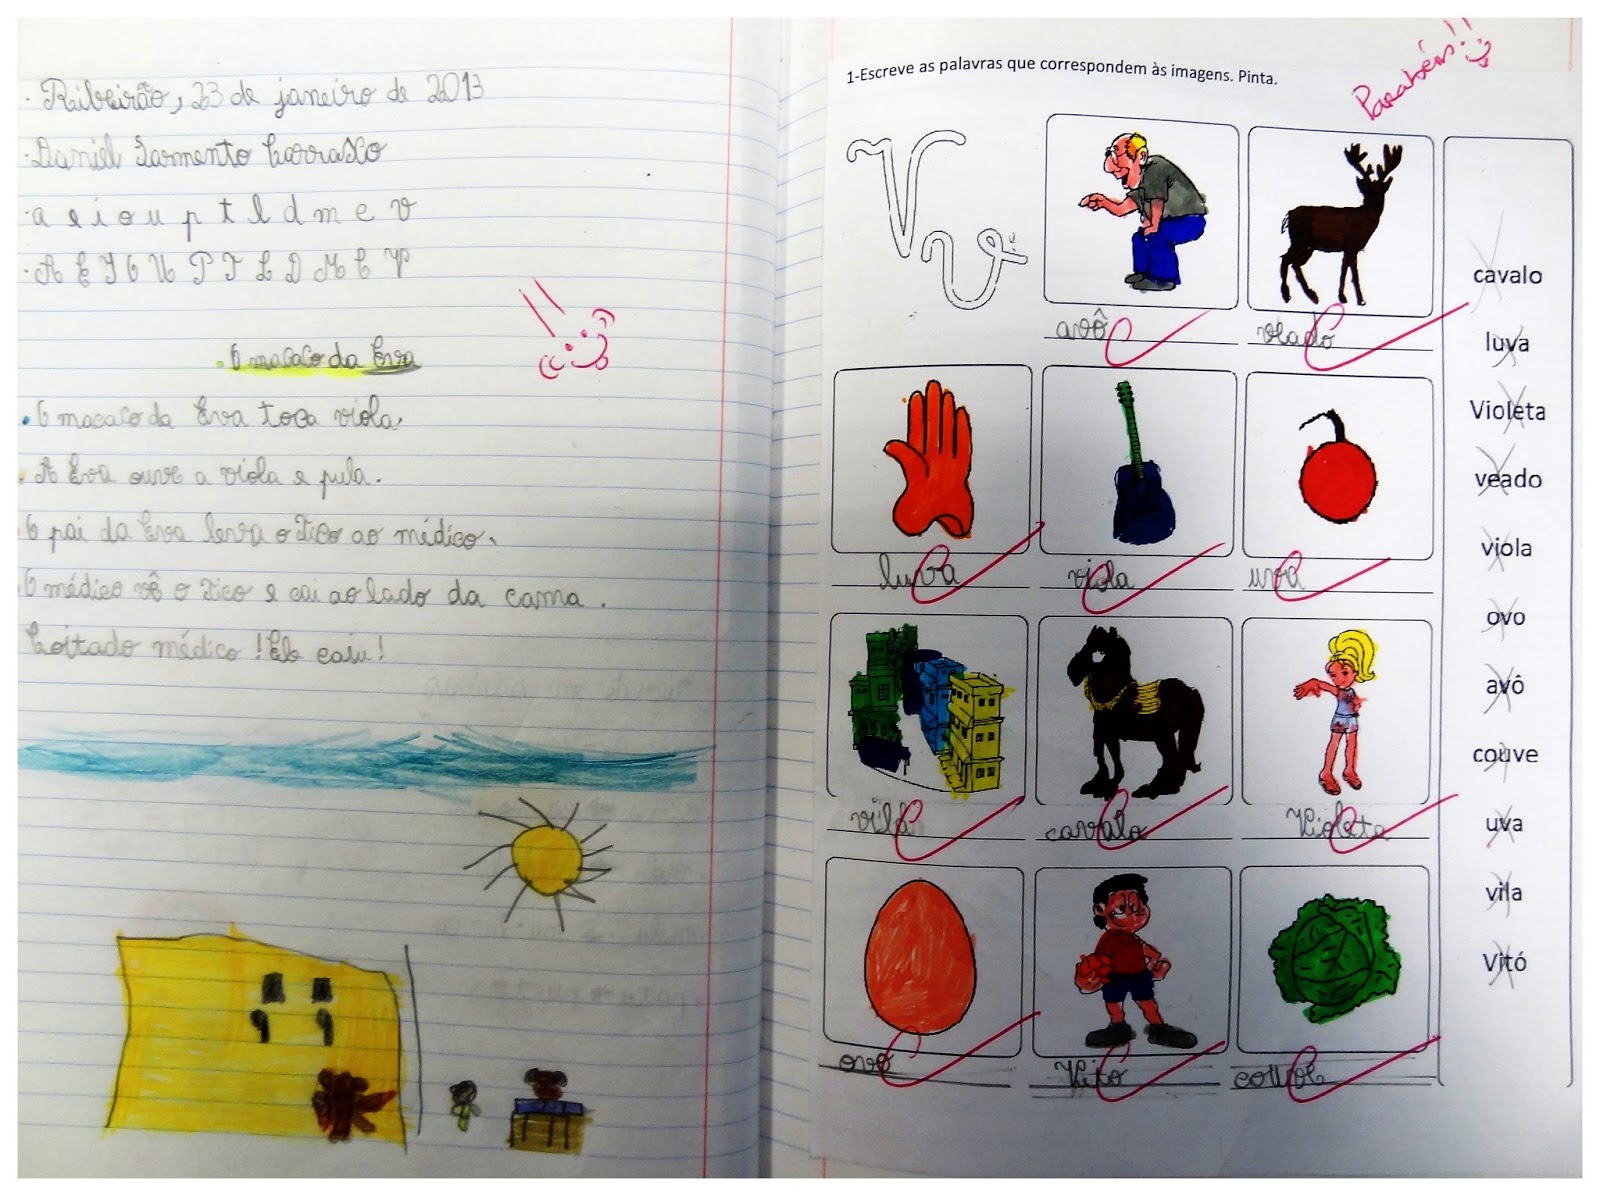 · Ribeirão, 23 de janeiro de 2013
· Daniel Sarmento Carrasco
· a e i o u p t l d m c v
· A E I O U P T L D M C V
. O macaco da Eva
. O macaco da Eva toca viola.
. A Eva ouve a viola e pula.
. O pai da Eva leva o Tico ao médico.
. O médico vê o Tico e cai ao lado da cama.
Coitado médico! Ele caiu!
1-Escreve as palavras que correspondem às imagens. Pinta.
Parabéns!!
V v
avô
veado
luva
viola
uva
vila
cavalo
Violeta
ovo
Vitó
couve
cavalo
luva
Violeta
veado
viola
ovo
avô
couve
uva
vila
Vitó